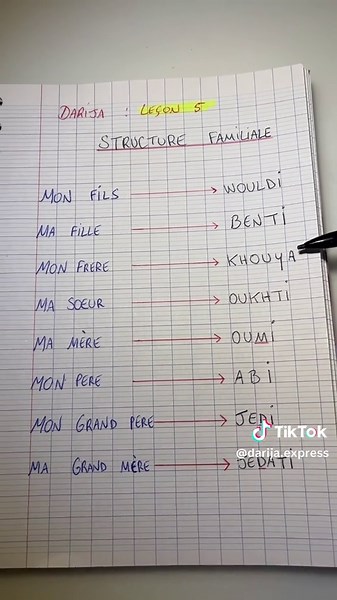 DARIJA : LEÇON 5
STRUCTURE FAMILIALE
MON FILS → WOULDI
MA FILLE → BENTI
MON FRERE → KHOUYA
MA SOEUR → OUKHTI
MA MÈRE → OUMI
MON PERE → ABI
MON GRAND PÈRE → JEDI
MA GRAND MÈRE → JEDATI
TikTok
@darija.express